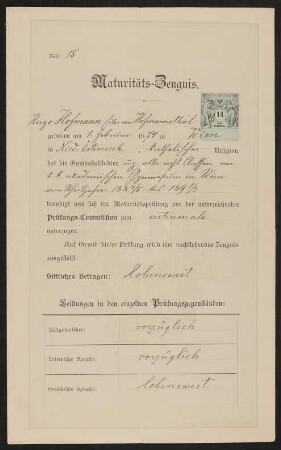 Zahl 15
Maturitäts-Zeugnis.
Hugo Hofmann Edler von Hofmannsthal
geboren am 1. Februar 1874 zu Wien
in Nied. Österreich, katholischer Religion
hat die Gymnasialstudien alle acht Classen am
k. k. akademischen Gymnasium in Wien
vom Schuljahre bis
beendigt und sich der Maturitätsprüfung vor der unterzeichneten
Prüfungs-Commission zum erstenmale
unterzogen.
Auf Grund dieser Prüfung wird ihm nachstehendes Zeugnis
ausgestellt:
Sittliches Betragen: lobenswert
Leistungen in den einzelnen Prüfungsgegenständen:
Religionslehre: vorzüglich
Lateinische Sprache: vorzüglich
Griechische Sprache: lobenswert